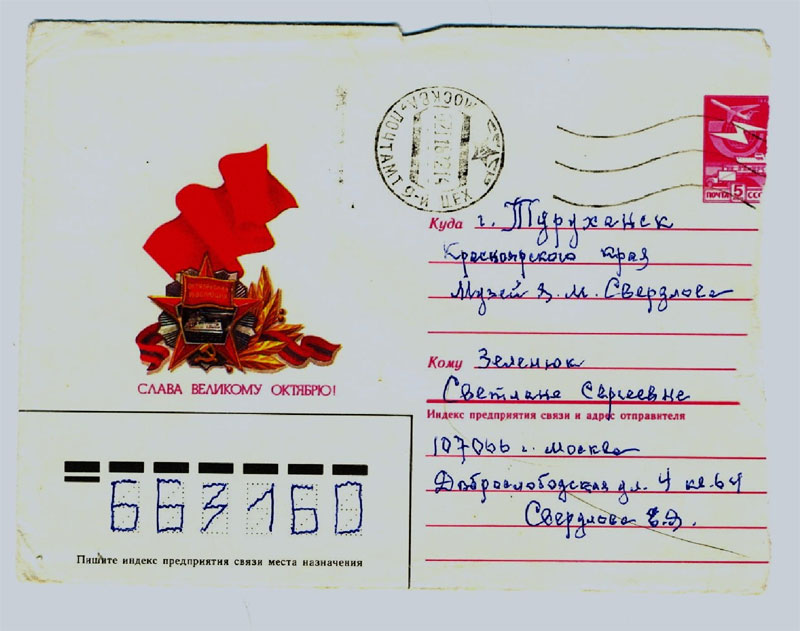 МОСКВА-ПОЧТАМТ 5-Й ЦЕХ
ПОЧТА 5 СССР
Куда г. Туруханск
Красноярского края
Музей Я. М. Свердлова
СЛАВА ВЕЛИКОМУ ОКТЯБРЮ!
Кому Зеленюк
Светлане Сергеевне
Индекс предприятия связи и адрес отправителя
107066 г. Москва
Доброслободская ул. 4 кв. 64
Свердлова
663160
Пишите индекс предприятия связи места назначения